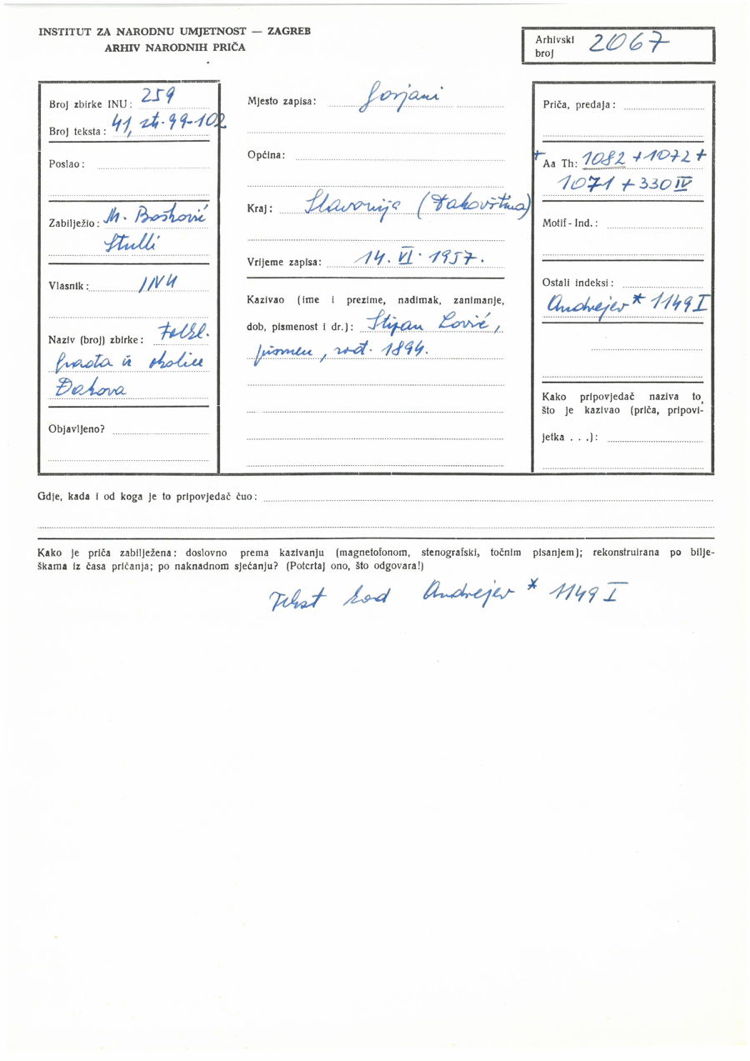 INSTITUT ZA NARODNU UMJETNOST — ZAGREB
ARHIV NARODNIH PRIČA
Arhivski broj 2067
Broj zbirke INU: 259
Broj teksta: 41, str. 99-102
Poslao:
Zabilježio: M. Bošković
Stulli
Vlasnik: INU
Naziv (broj) zbirke: Folkl.
građa iz okolice
Đakova
Objavljeno?
Mjesto zapisa: Gorjani
Općina:
Kraj: Slavonija (Đakovština)
Vrijeme zapisa: 14. VI. 1957.
Kazivao (ime i prezime, nadimak, zanimanje,
dob, pismenost i dr.): Stjepan Lović,
pismen, rođ. 1894.
Priča, predaja:
+ Aa Th: 1082 + 1072 +
1071 + 330 IV
Motif - Ind.:
Ostali indeksi:
Andrejev * 1149 I
Kako pripovjedač naziva to,
što je kazivao (priča, pripovi-
jetka . . .):
Gdje, kada i od koga je to pripovjedač čuo:
Kako je priča zabilježena: doslovno prema kazivanju (magnetofonom, stenografski, točnim pisanjem); rekonstruirana po bilje-
škama iz časa pričanja; po naknadnom sjećanju? (Potcrtaj ono, što odgovara!)
Tekst kod Andrejev * 1149 I